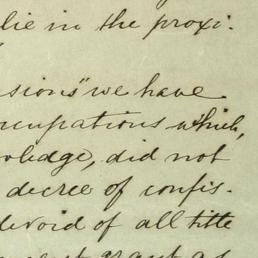 lie in the proxi-
sions" we have
cupations which,
wledge, did not
decree of confis-
devoid of all title
grant as